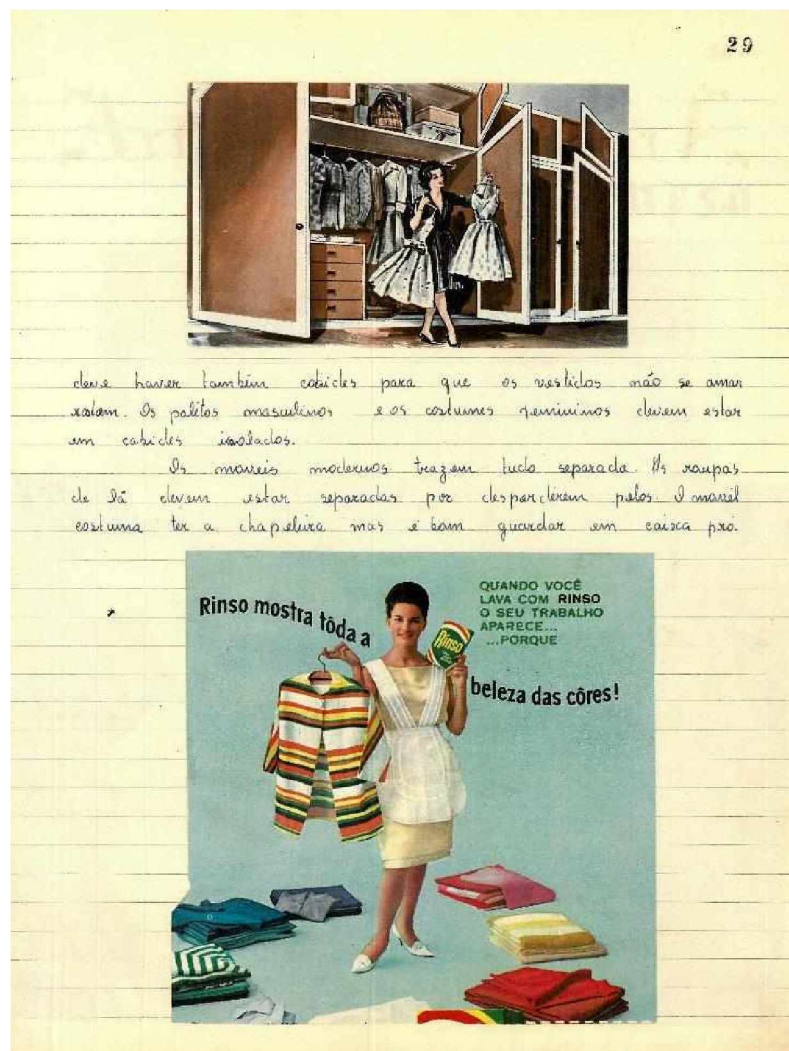 29
deve haver também cabides para que os vestidos não se amar
rotem. Os palitos masculinos e os costumes femininos devem estar
em cabides isolados.
Os moveis modernos trazem tudo separado. As roupas
de lã devem estar separadas por desparderem pelos. O movél
costuma ter a chapeleira mas é bom guardar em caixa pró.
Rinso mostra tôda a
QUANDO VOCÊ
LAVA COM RINSO
O SEU TRABALHO
APARECE...
...PORQUE
Rinso
beleza das côres!